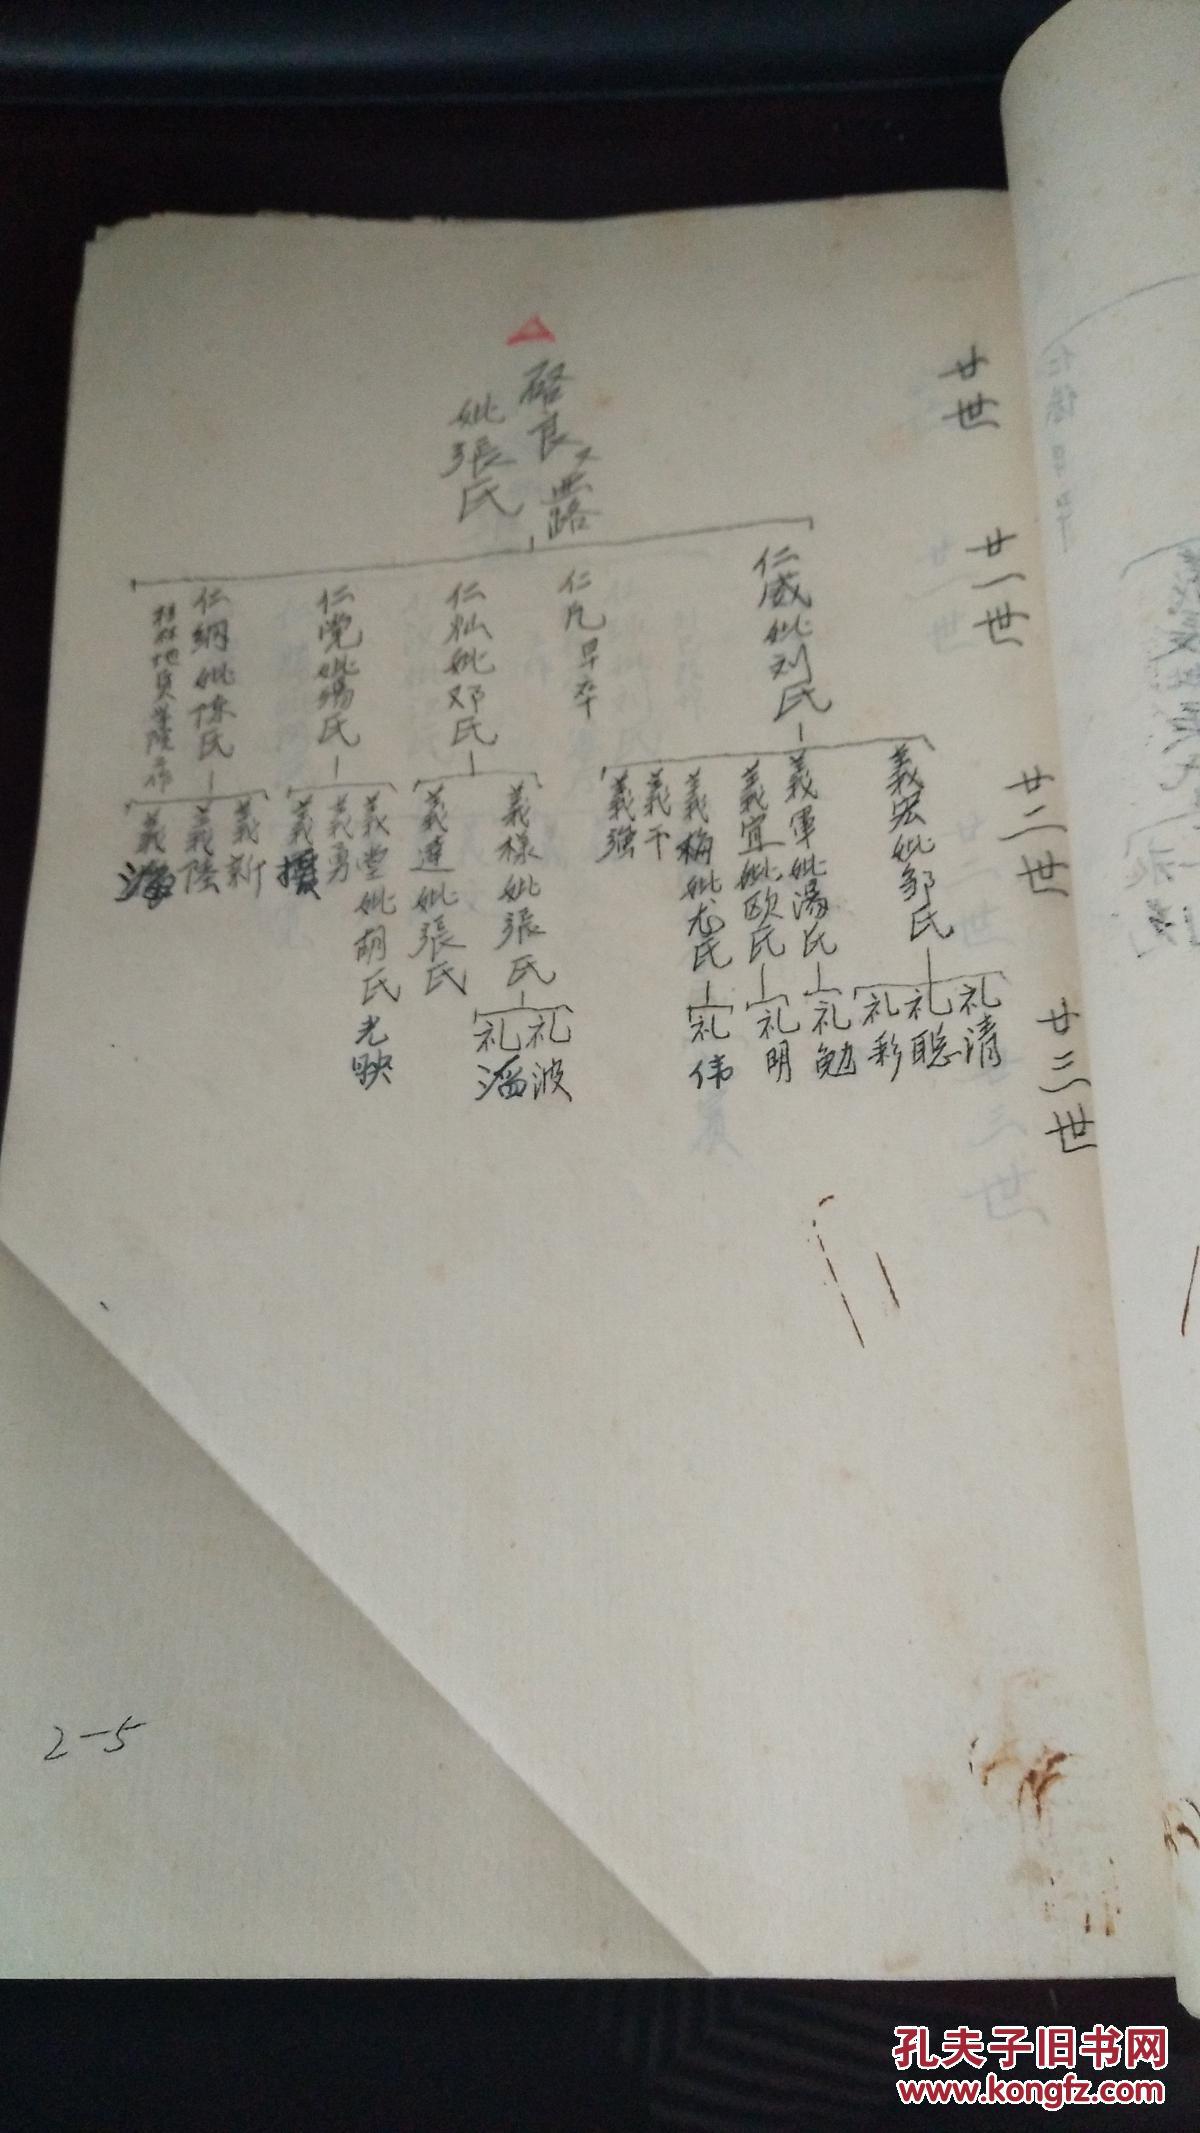 廿世
啓良又露
妣張氏
廿一世
仁威妣刘氏
仁凡早卒
仁灿妣邓氏
仁党妣湯氏
仁綱妣陈氏
桂林地質学院工作
廿二世
義宏妣邹氏
義軍妣湯氏
義宜妣欧氏
義梅妣尤氏
義干
義强
義樣妣張氏
義達妣張氏
義堂妣胡氏光映
義勇
義
義新
義陸
義海
廿三世
礼清
礼聪
礼彩
礼勉
礼明
礼伟
礼波
礼滔
2-5
孔夫子旧书网
www.kongfz.com